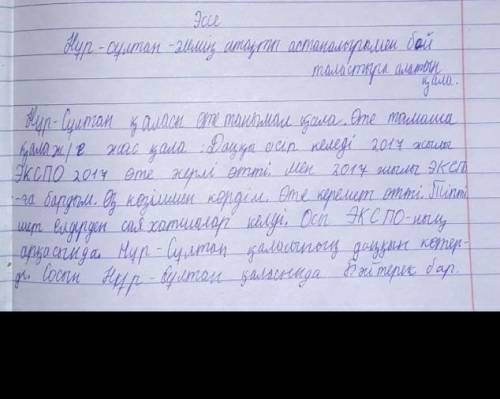 Эссе
Нұр-сұлтан - әлемнің атақты астаналарымен бой
таластыра алатын
қала.
Нұр-Сұлтан қаласы өте танымал қала. Өте тамаша
қала ж/е жас қала. Даңқы өсіп келеді 2017 жылы
ЭКСПО 2017 өте жерлі өтті. Мен 2017 жылы ЭКСПО
-ға бардым. Өз көзіммен көрдім. Өте керемет өтті. Тіпті
шет елдерден саяхатшылар келді. Осы ЭКСПО-ның
арқасында. Нұр-Сұлтан қаласының даңқын көтер-
ді. Сосын Нұр-сұлтан қаласында Бәйтерек бар.